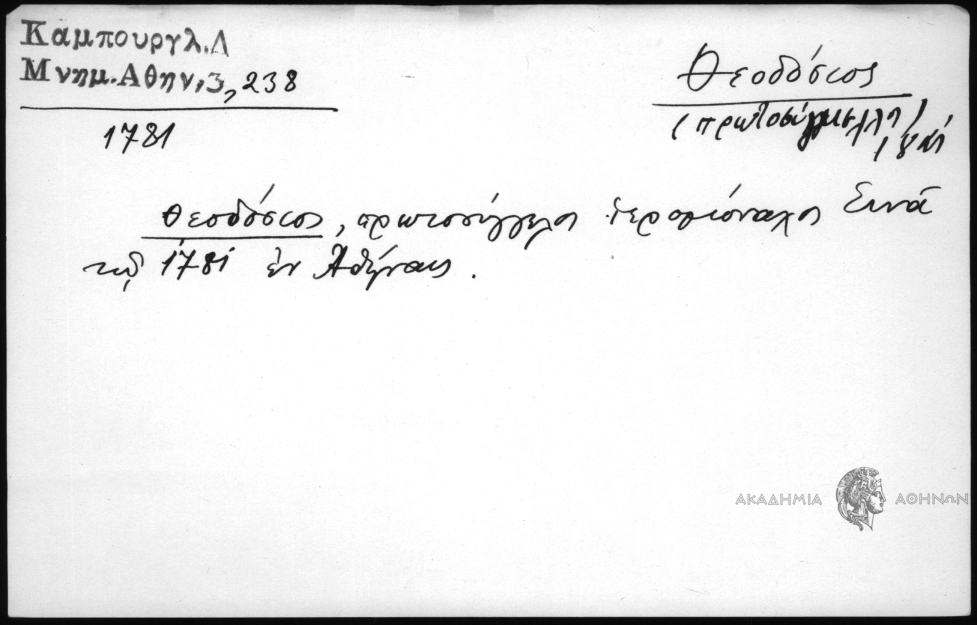 Καμπουργλ.Δ
Μνημ.Αθην,3,238
1781
Θεοδόσιος
(πρωτοσύγγελλος)
Θεοδόσιος, πρωτοσύγγελος ἱερομόναχος Σινᾶ
τῷ 1781 ἐν Ἀθήναις.
ΑΚΑΔΗΜΙΑ ΑΘΗΝΩΝ